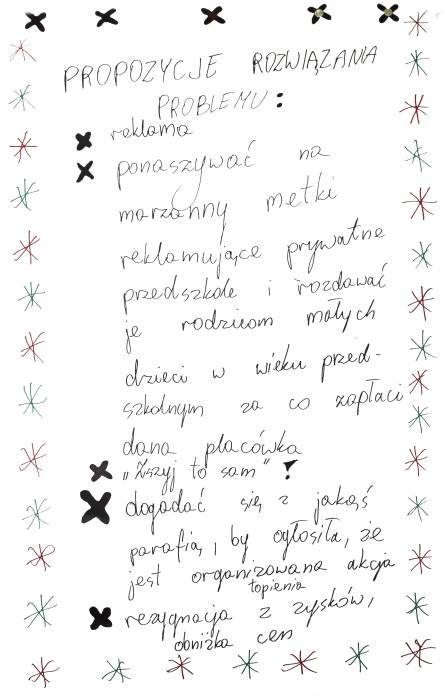 PROPOZYCJE ROZWIĄZANIA
PROBLEMU:
reklama
ponaszywać na
marzanny metki
reklamujące prywatne
przedszkole i rozdawać
je rodzicom małych
dzieci w wieku przed-
szkolnym za co zapłaci
dana placówka
"Zszyj to sam"!
dogadać się z jakąś
parafią, by ogłosiła, że
jest organizowana akcja
topienia
rezygnacja z zysków,
obniżka cen